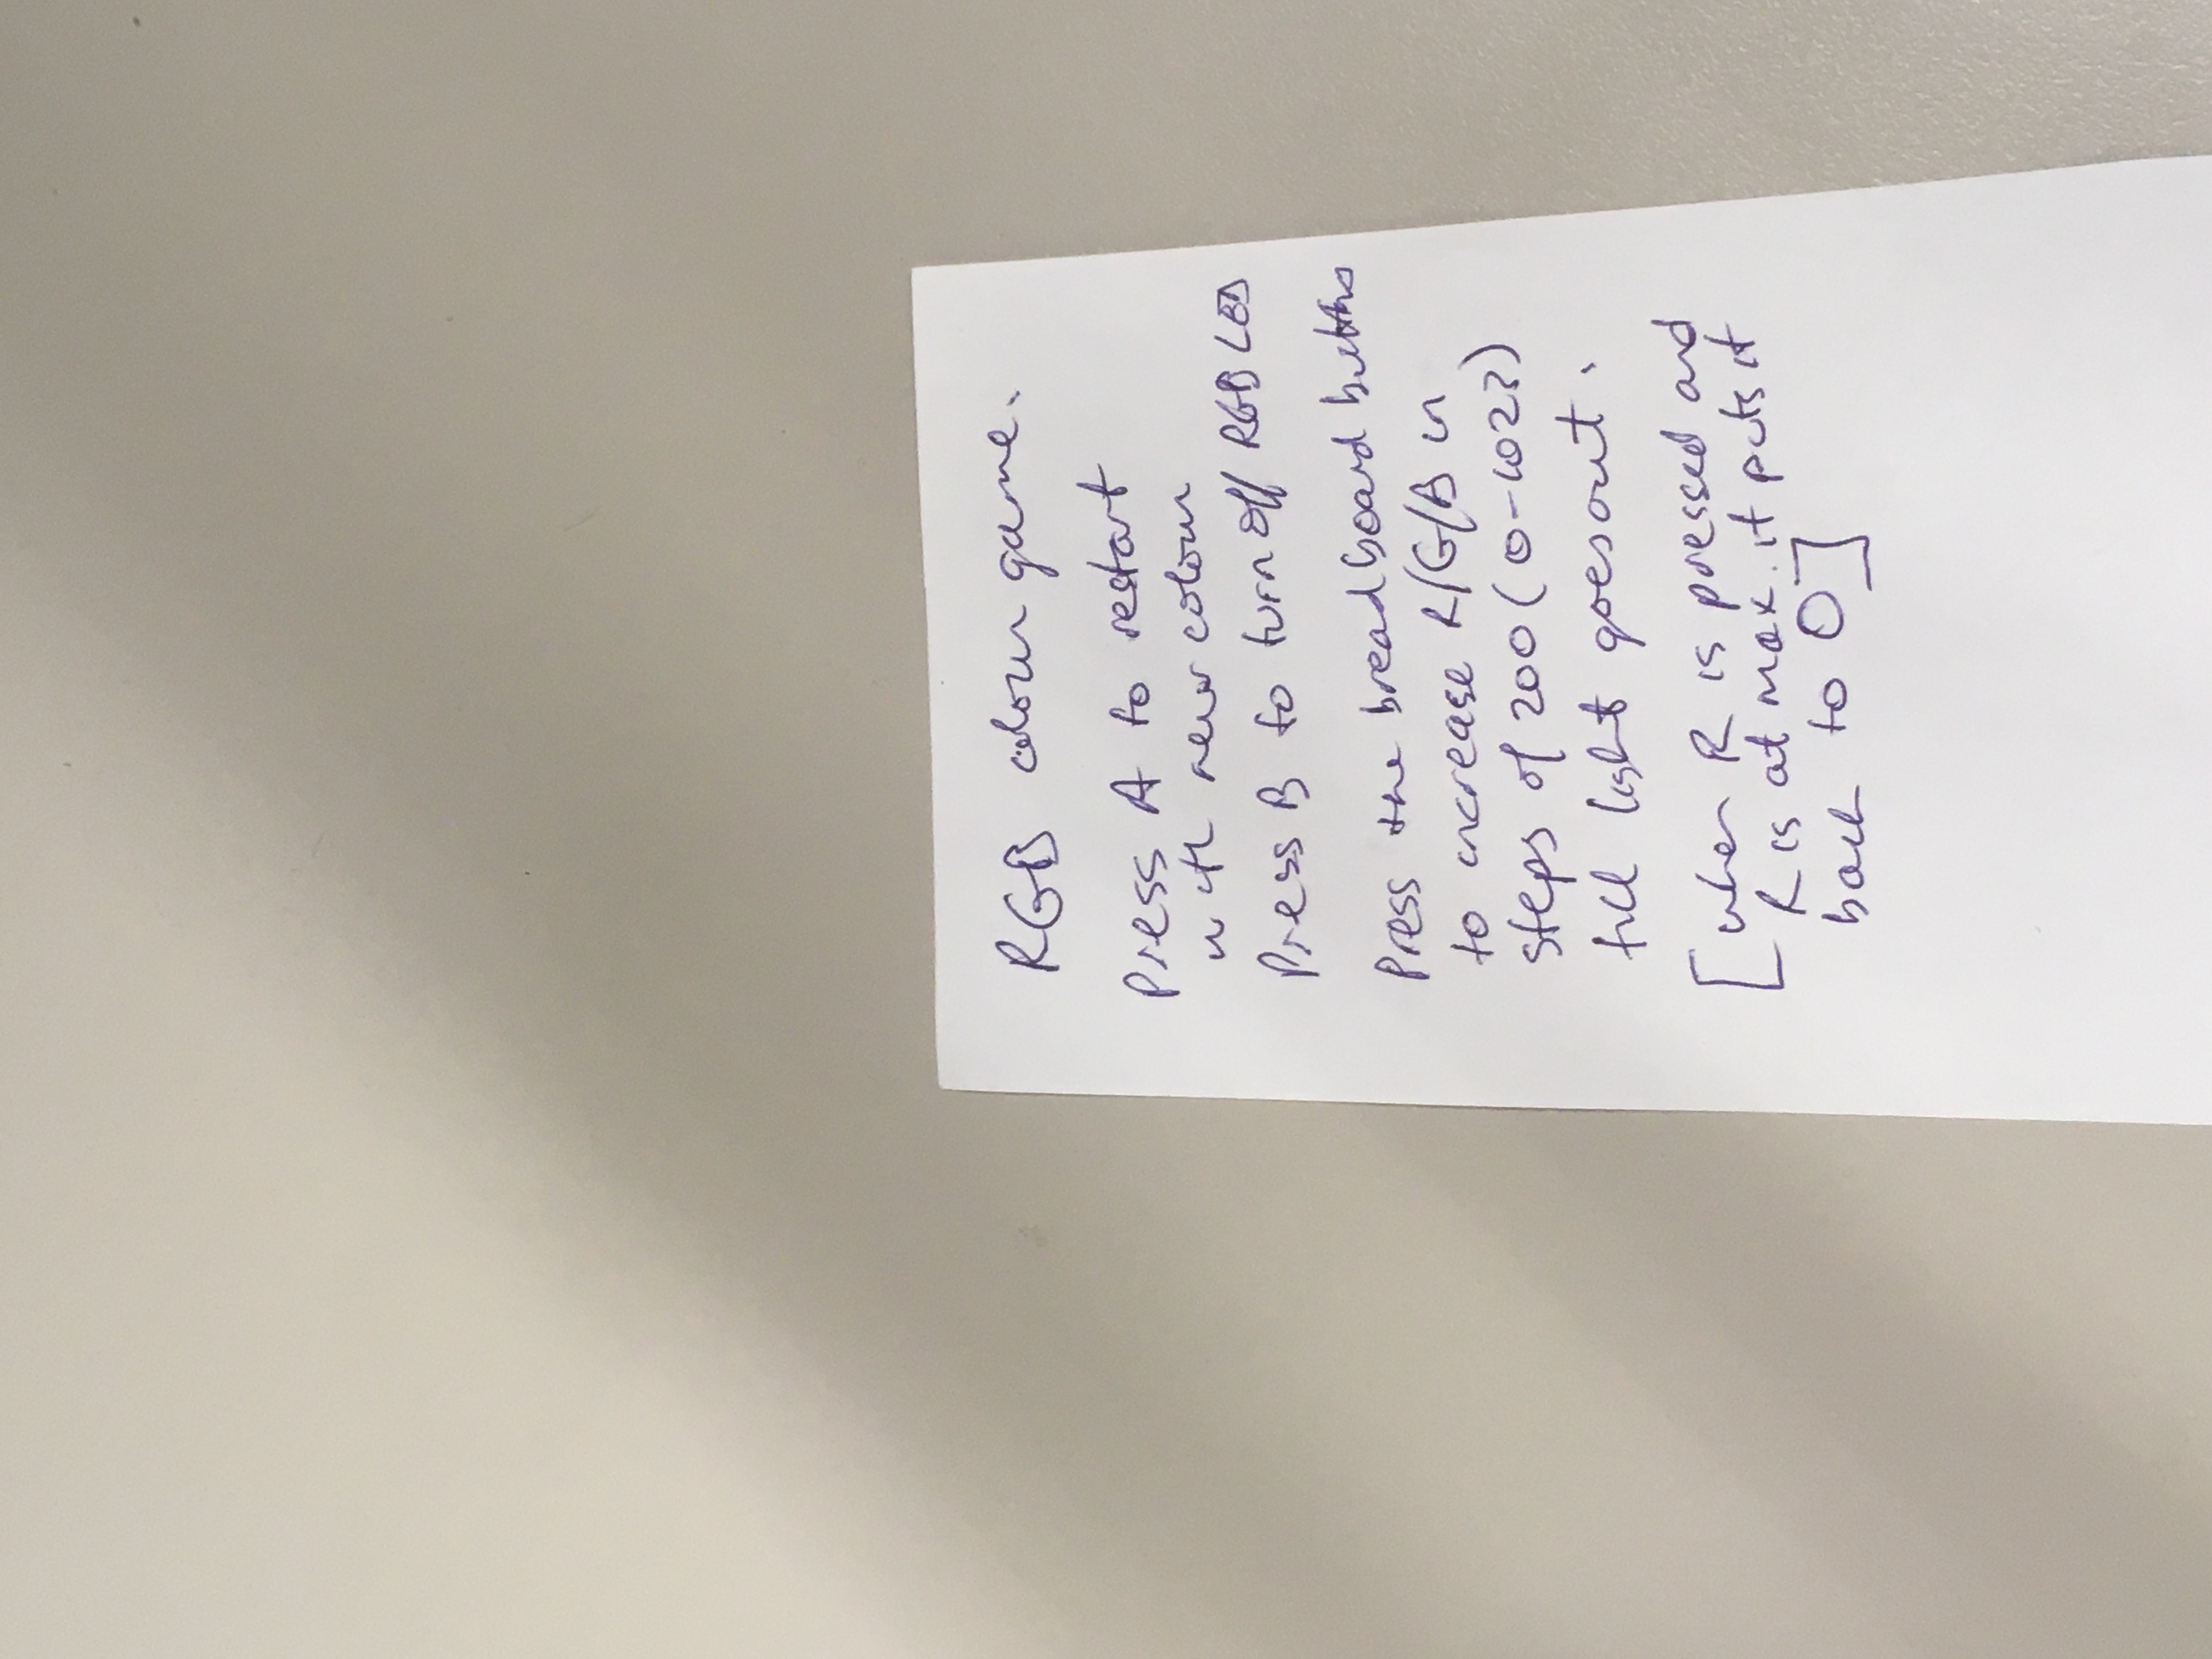 RGB colour game.
Press A to restart
with new colour
Press B to turn off RGB LED
Press the breadboard buttons
to increase R/G/B in
steps of 200 (0-1023)
till light goes out.
[when R is pressed and
R is at max. it puts it
back to 0]